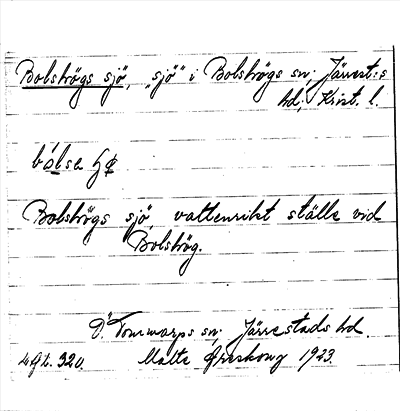 Bolshögs sjö, "sjö" i Bolshögs sn; Järrest:s
hd; Krist. l.
bolsa
Bolshögs sjö, vattenrikt ställe vid
Bolshög.
Ö. Tommarps sn; Järrestads hd.
320. Malte 1923.